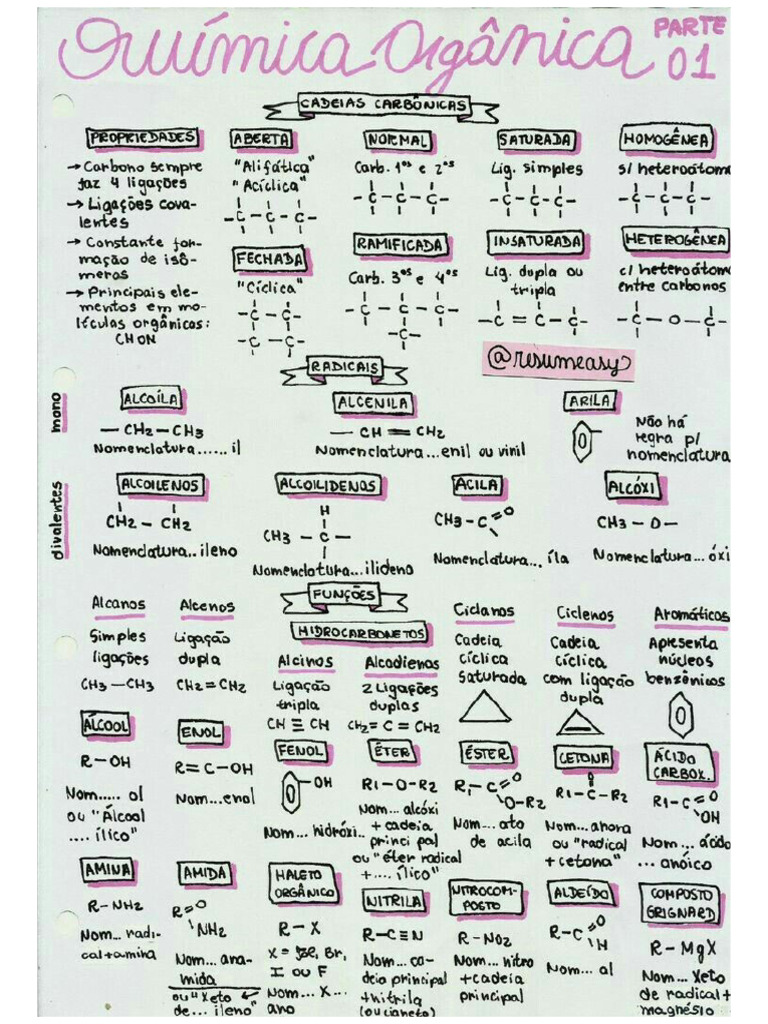 Química Orgânica PARTE 01
CADEIAS CARBÔNICAS
PROPRIEDADES
→ Carbono sempre
faz 4 ligações
→ Ligações cova-
lentes
→ Constante for-
mação de isô-
meros
→ Principais ele-
mentos em mo-
léculas orgânicas:
CHON
ABERTA
"Alifática"
"Acíclica"
-C-C-C-
FECHADA
"Cíclica"
-C-C-
-C-C-
NORMAL
Carb. 1ºs e 2ºs
-C-C-C-
RAMIFICADA
Carb. 3ºs e 4ºs
-C-C-C-
-C-
SATURADA
Lig. simples
-C-C-C-
INSATURADA
Lig. dupla ou
tripla
-C=C-C-
HOMOGÊNEA
s/ heteroátomo
-C-C-C-
HETEROGÊNEA
c/ heteroátomo
entre carbonos
-C-O-C-
@resumeasy
RADICAIS
mono
ALCOÍLA
—CH2—CH3
Nomenclatura......il
ALCENILA
—CH=CH2
Nomenclatura...enil ou vinil
ARILA
Não há
regra p/
nomenclatura
divalentes
ALCOILENOS
CH2—CH2
Nomenclatura...ileno
ALCOILIDENOS
H
CH3—C—
Nomenclatura...ilideno
ACILA
CH3-C=O
Nomenclatura...íla
ALCÓXI
CH3—O—
Nomenclatura...óxi
FUNÇÕES
HIDROCARBONETOS
Alcanos
Simples
ligações
CH3—CH3
Alcenos
Ligação
dupla
CH2=CH2
Alcinos
Ligação
tripla
CH≡CH
Alcodienos
2 Ligações
duplas
CH2=C=CH2
Ciclanos
Cadeia
cíclica
saturada
Ciclenos
Cadeia
cíclica
com ligação
dupla
Aromáticos
Apresenta
núcleos
benzênicos
ÁLCOOL
R-OH
Nom..... ol
ou "Álcool
.... ílico"
ENOL
R=C-OH
Nom...enol
FENOL
OH
Nom... hidróxi..
ÉTER
R1-O-R2
Nom... alcóxi
+ cadeia
principal
ou "éter radical
+.... ílico"
ÉSTER
R1-C=O
O-R2
Nom... ato
de acila
CETONA
O
R1-C-R2
Nom...anona
ou "radical
+cetona"
ÁCIDO
CARBOX.
R1-C=O
OH
Nom... ácido
... anóico
AMINA
R-NH2
Nom... radi-
cal+amina
AMIDA
R=O
NH2
Nom... ana-
mida
ou "
de... ileno"
HALETO
ORGÂNICO
R-X
Br,
I ou F
Nom... X...
ano
NITRILA
R-C≡N
Nom...ca-
deia principal
+nitrila
(ou cianeto)
NITROCOM-
POSTO
R-NO2
Nom... nitro
+cadeia
principal
ALDEÍDO
R-C=O
H
Nom... al
COMPOSTO
GRIGNARD
R-MgX
Nom... Xeto
de radical+
magnésio